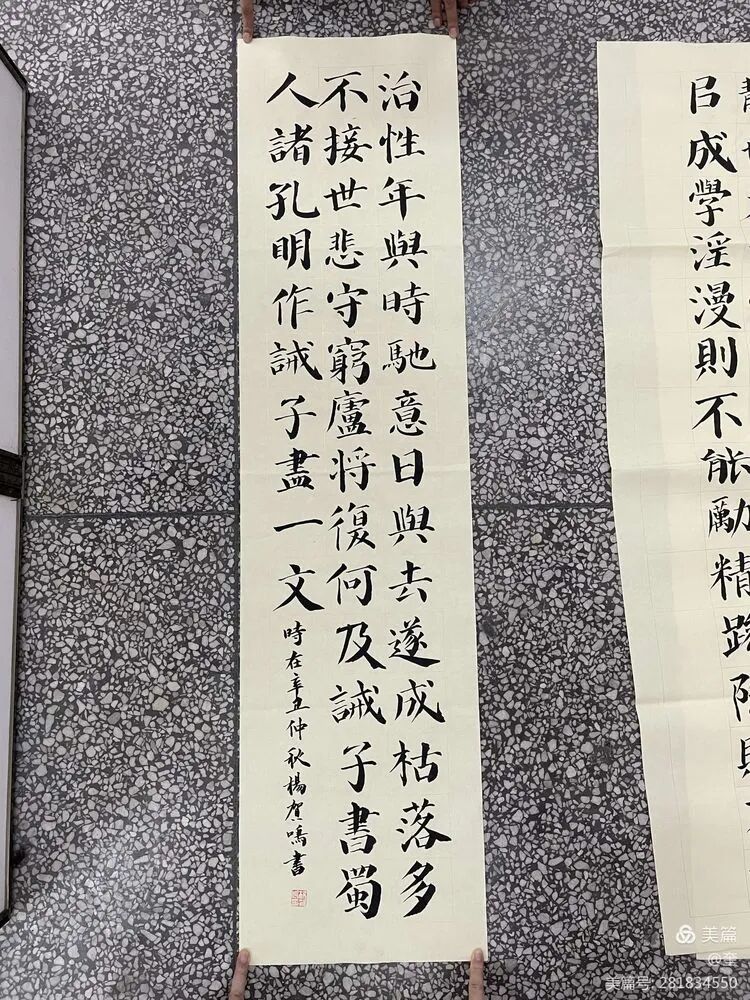 㠯成學淫漫則不能勵精
治性年與時馳意日與去遂成枯落多
不接世悲守窮廬將復何及誡子書蜀
人諸孔明作誡子盡一文
時在辛丑仲秋楊賀鳴書
美篇
@奎
美篇号: 281834550